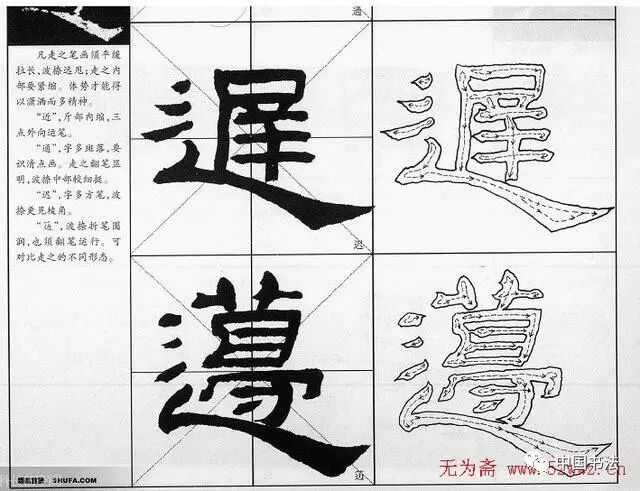 通
凡走之笔画须平缓
拉长,波捺远甩;走之内
部要紧缩。体势才能得
以潇洒而多精神。
“近”,斤部内缩,三
点外向运笔。
“通”,字多斑落,要
识清点画。走之翻笔显
明,波捺中部较细挺。
“迟”,字多方笔,波
捺更见棱角。
润,也须翻笔运行。可
对比走之的不同形态。
遲
迟
SHUFA.COM
无为斋 www.5
中国书法